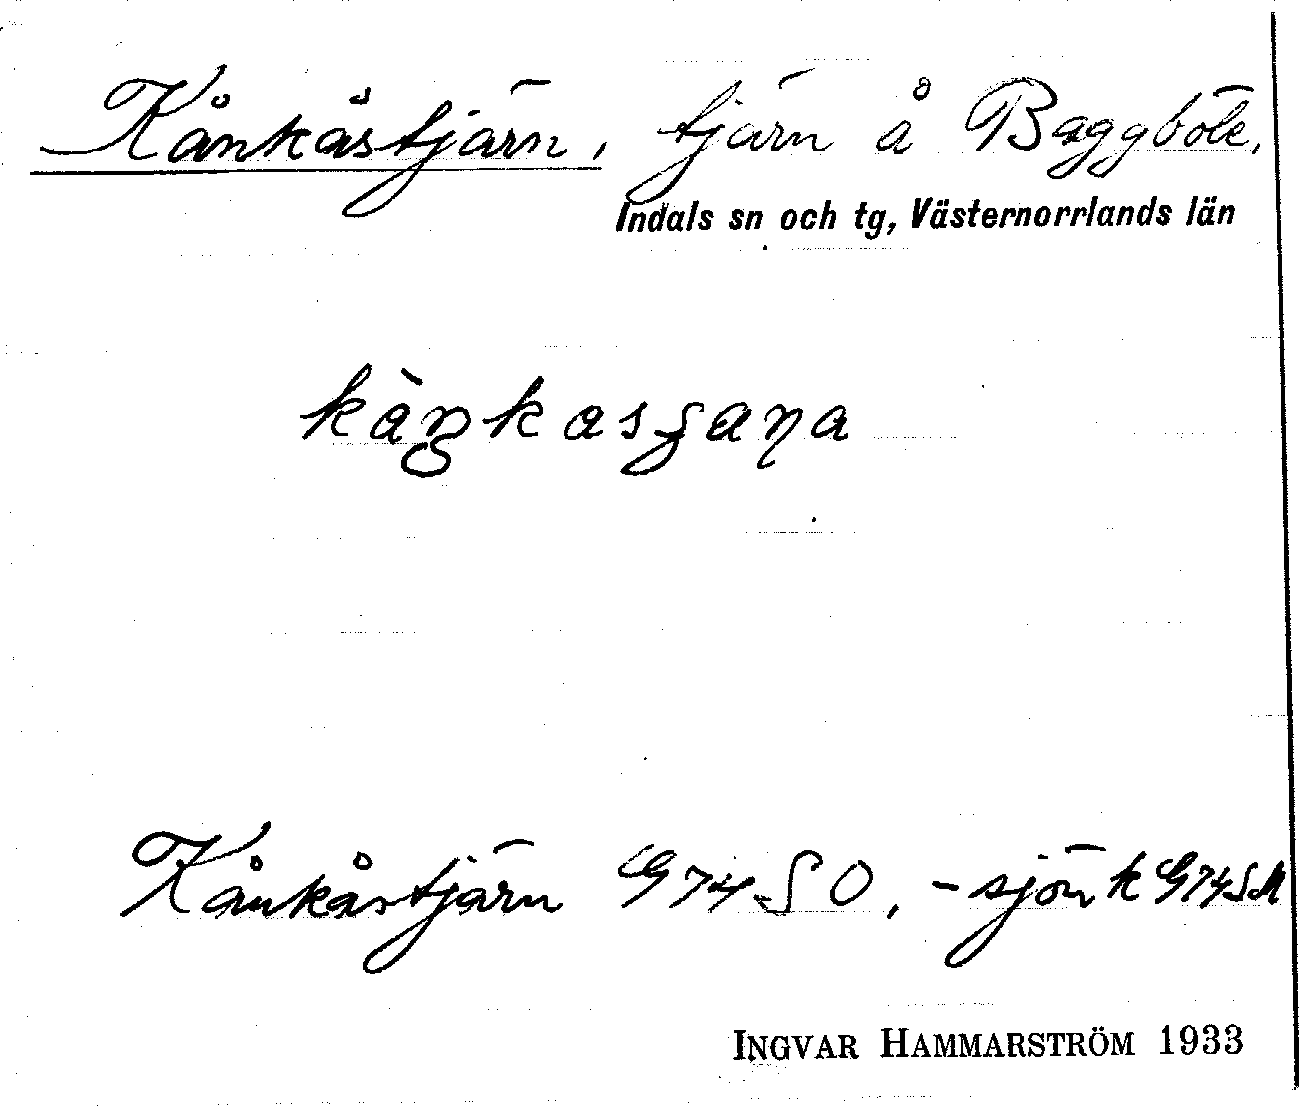 Kånkåstjärn, tjärn å Baggböle,
Indals sn och tg, Västernorrlands län
kàŋkasʃaɳa
Kånkåstjärn G74SO, -sjön k G74SM
INGVAR HAMMARSTRÖM 1933